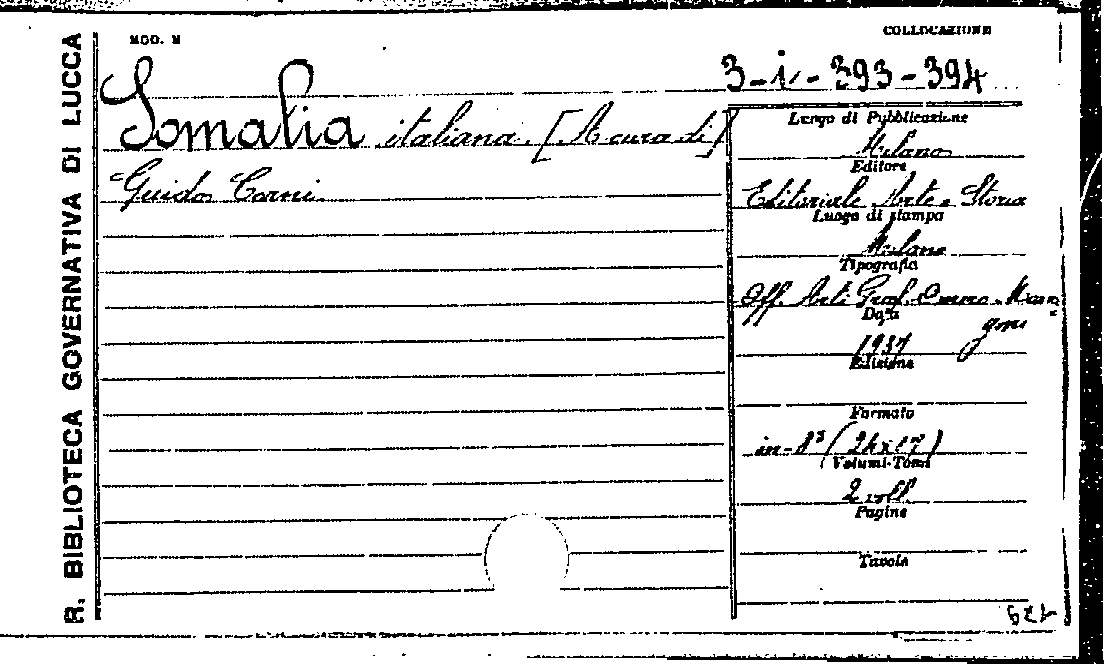 R. BIBLIOTECA GOVERNATIVA DI LUCCA
MOD. M
COLLOCAZIONE
3-i-393-394
Somalia italiana. [A cura di]
Guido Corni.
Luogo di Pubblicazione
Milano
Editore
Editoriale Arte e Storia
Luogo di stampa
Milano
Tipografia
Off. Arti Graf. Esperia - Man
goni
Data
1937
Edizione
Formato
in-8° (24x17)
Volumi-Tomi
2 voll.
Pagine
Tavole